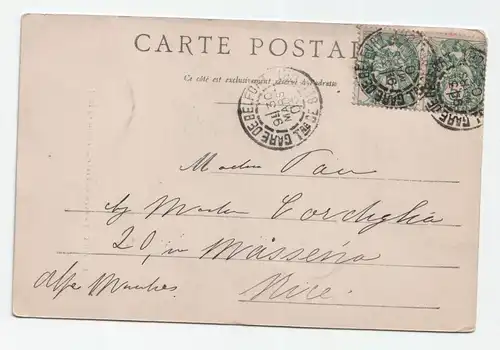 CARTE POSTALE
Ce côté est exclusivement réservé à l'adresse
GARE DE BELFORT
Madame Pau
chez Madame Cordiglia
20, rue Masséna
Alpes Maritimes Nice